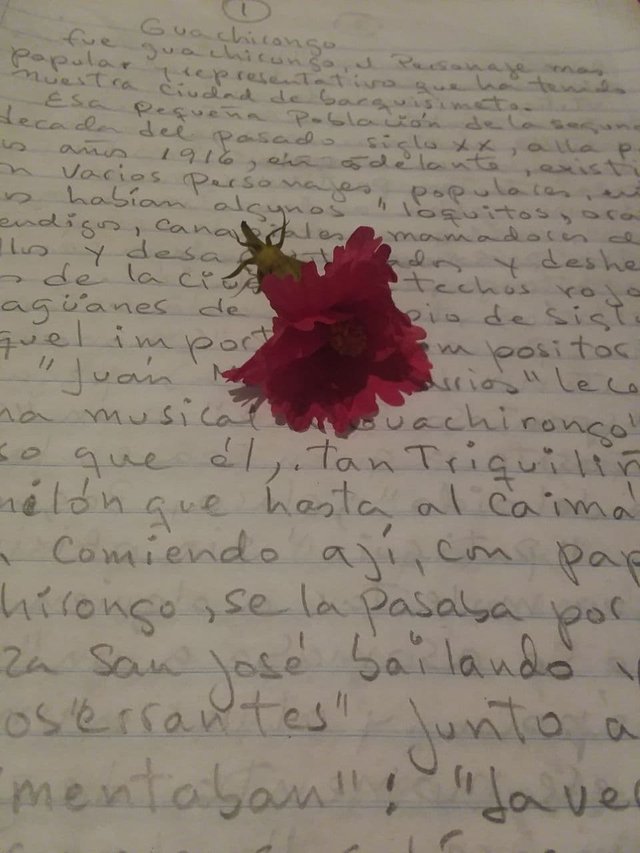 1
Guachirongo
fue guachirongo, el Personaje mas
popular y representativo que ha tenido
nuestra ciudad de barquisimeto.
Esa pequeña Población de la segun
decada del pasado siglo xx, alla p
s años 1916, en adelante, existi
n varios Personajes populares, en
s habían algunos "loquitos, ora
endigos, mamadores de
llos y desa ados y deshe
s de la ciu techos rojo
agüanes de pio de sigl
quel import m positos
"Juan rrios" le co
na musical Guachirongo"
so que él, tan Triquiliñ
milón que hasta al Caima
Comiendo ají, con pap
hirongo, se la pasaba por
za San José bailando y
os "errantes" junto a
mentaban": "Ja ve